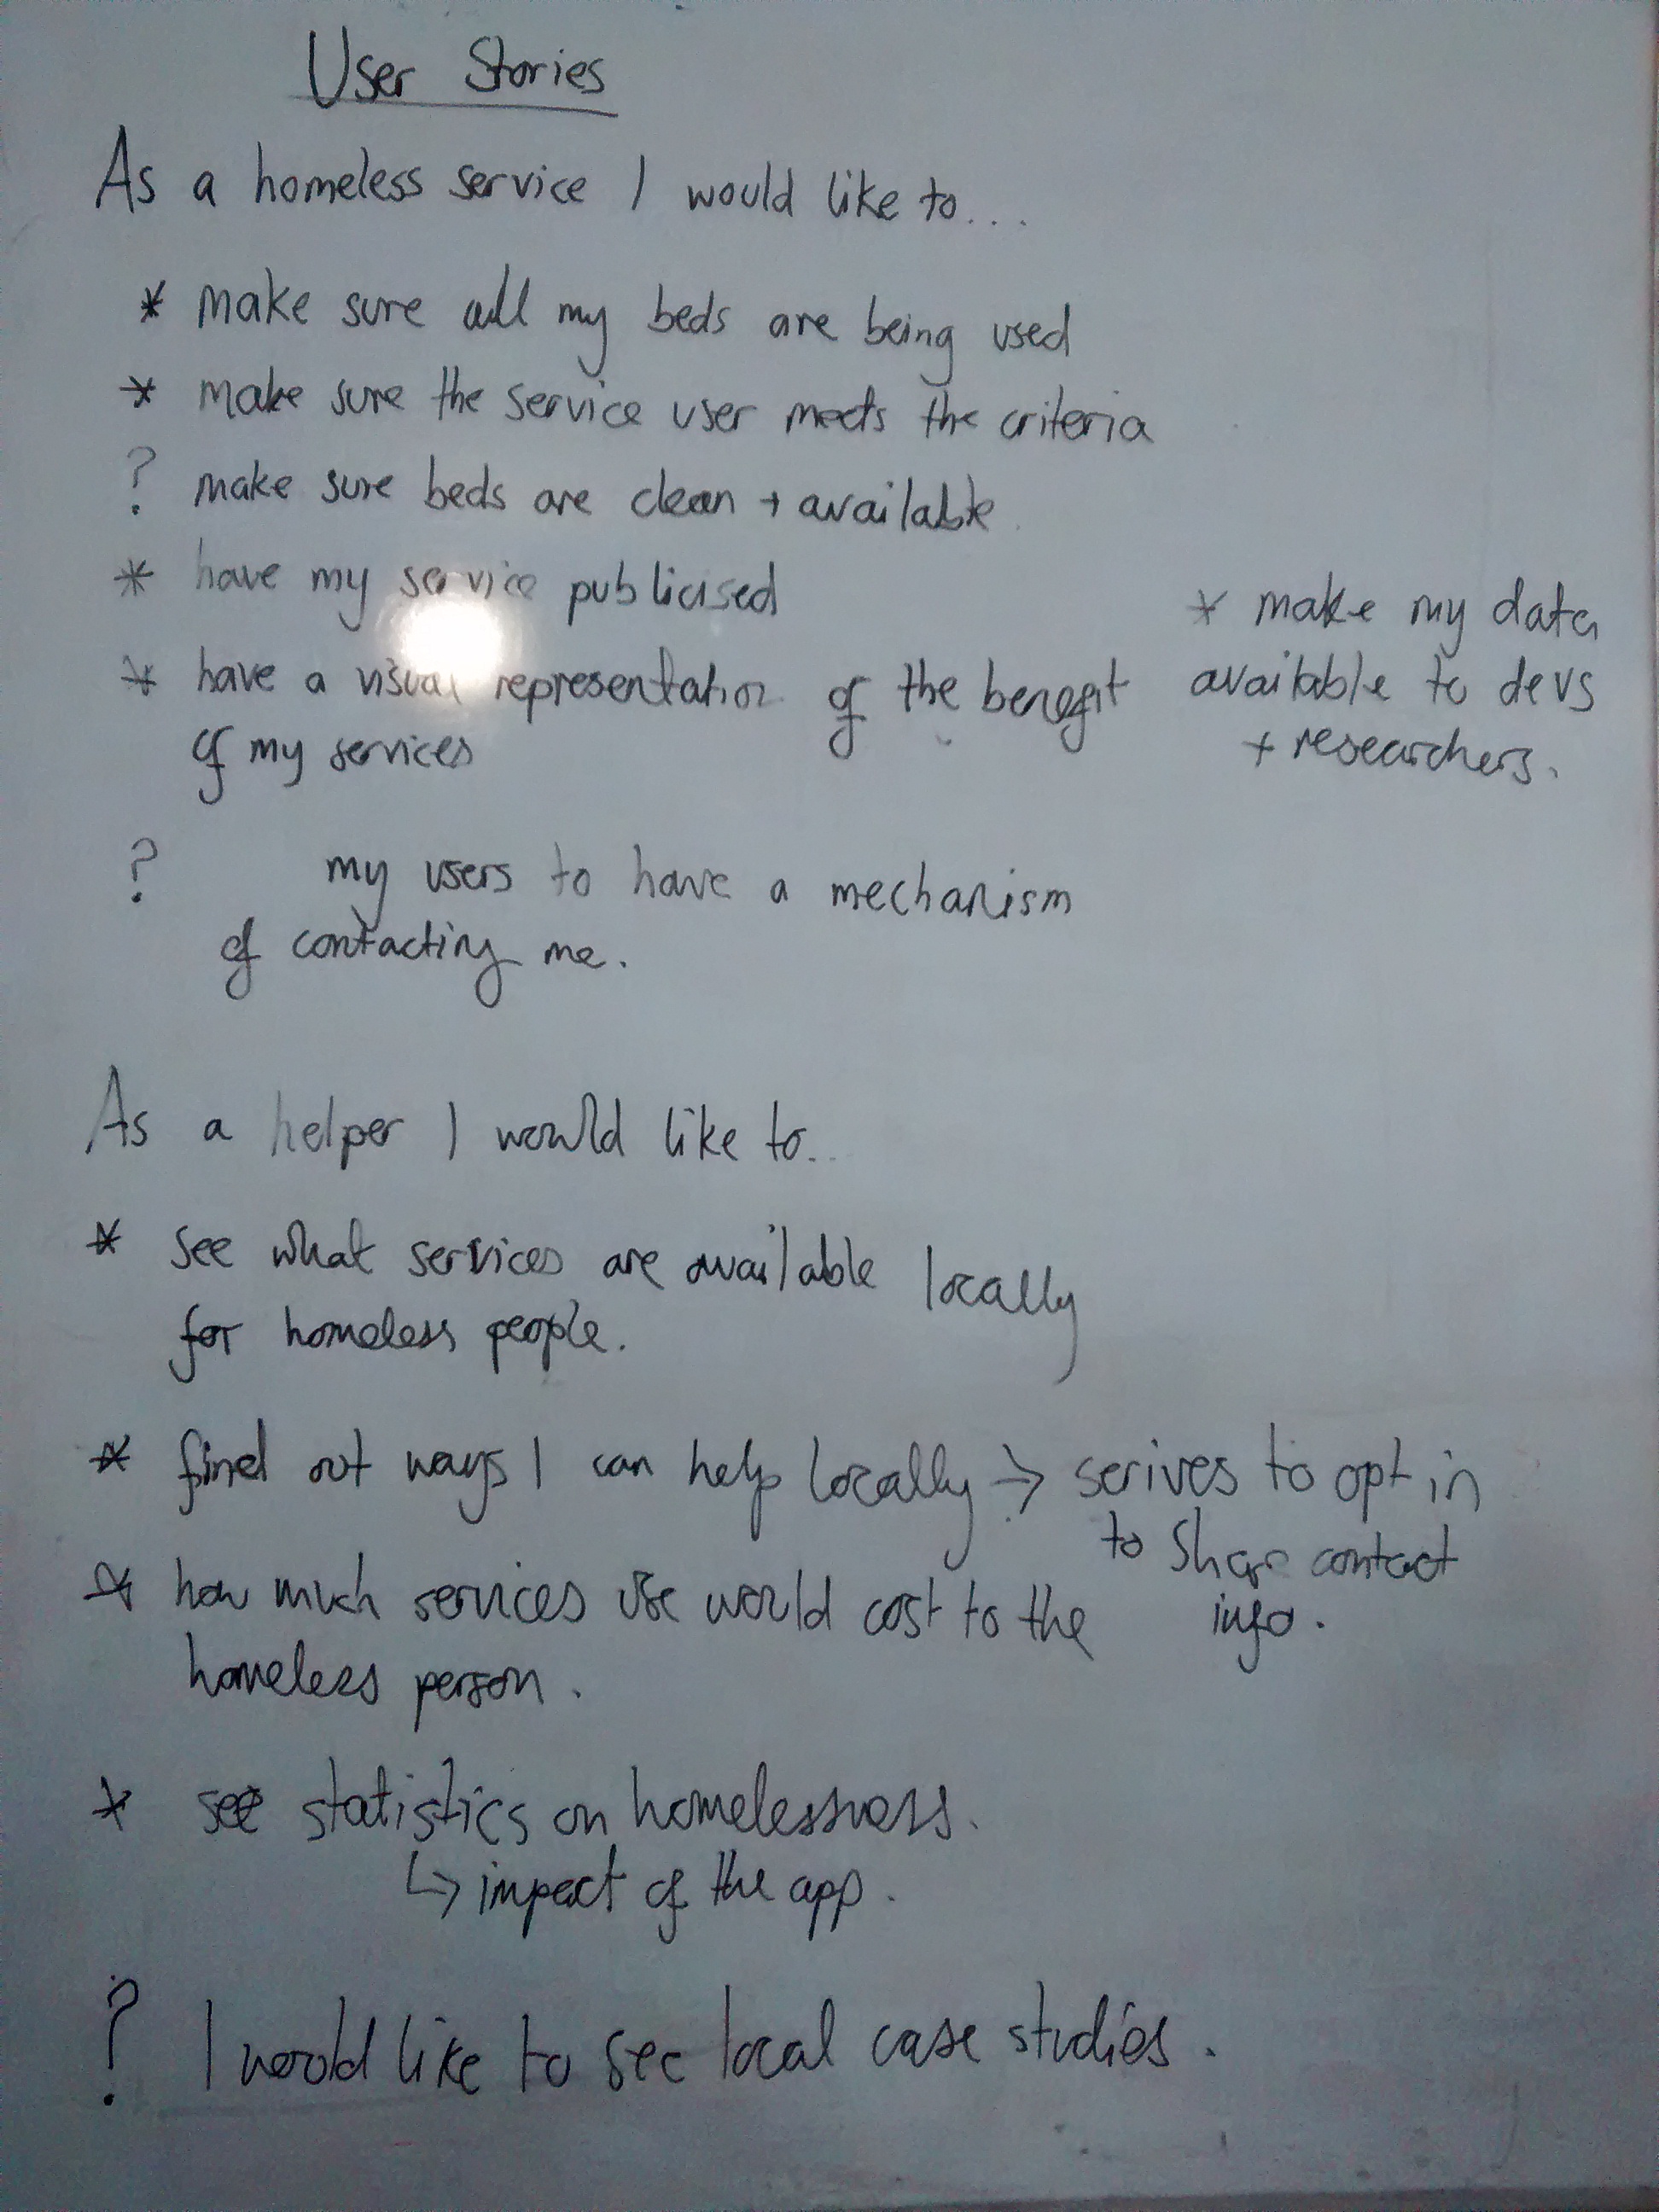 User Stories
As a homeless service I would like to...
* make sure all my beds are being used
* make sure the service user meets the criteria
? make sure beds are clean + available
* have my service publicised
* have a visual representation of the benefit
of my services
* make my data
available to devs
+ researchers.
? my users to have a mechanism
of contacting me.
As a helper I would like to..
* see what services are available locally
for homeless people.
* find out ways I can help locally → serives to opt in
to share contact
info.
* how much services use would cost to the
homeless person.
* see statistics on homelessness.
↳ impact of the app.
? I would like to see local case studies.